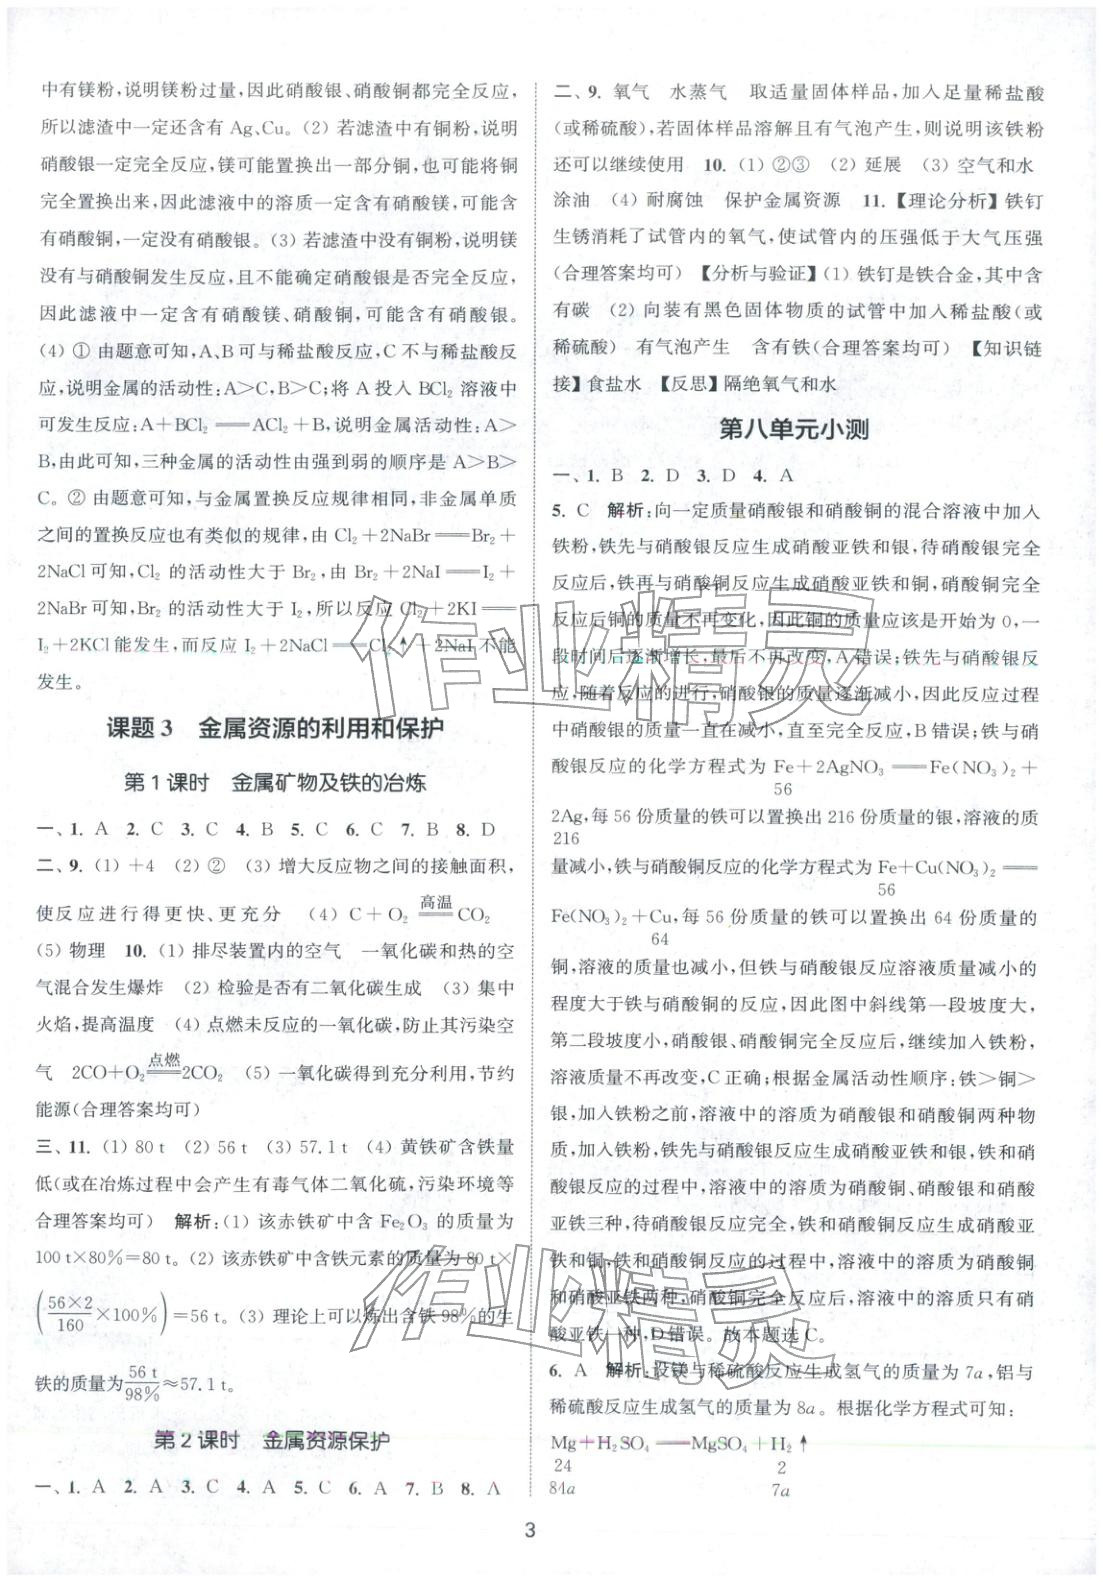 中有镁粉，说明镁粉过量，因此硝酸银、硝酸铜都完全反应，
所以滤渣中一定还含有 Ag、Cu。（2）若滤渣中有铜粉，说明
硝酸银一定完全反应，镁可能置换出一部分铜，也可能将铜
完全置换出来，因此滤液中的溶质一定含有硝酸镁，可能含
有硝酸铜，一定没有硝酸银。（3）若滤渣中没有铜粉，说明镁
没有与硝酸铜发生反应，且不能确定硝酸银是否完全反应，
因此滤液中一定含有硝酸镁、硝酸铜，可能含有硝酸银。
（4）① 由题意可知，A、B 可与稀盐酸反应，C 不与稀盐酸反
应，说明金属的活动性：A＞C，B＞C；将 A 投入 BCl₂ 溶液中
可发生反应：A＋BCl₂══ACl₂＋B，说明金属活动性：A＞
B，由此可知，三种金属的活动性由强到弱的顺序是 A＞B＞
C。② 由题意可知，与金属置换反应规律相同，非金属单质
之间的置换反应也有类似的规律，由 Cl₂＋2NaBr══Br₂＋
2NaCl 可知，Cl₂ 的活动性大于 Br₂，由 Br₂＋2NaI══I₂＋
2NaBr 可知，Br₂ 的活动性大于 I₂，所以反应 Cl₂＋2KI══
I₂＋2KCl 能发生，而反应 I₂＋2NaCl══Cl₂↑＋2NaI 不能
发生。
课题 3　金属资源的利用和保护
第 1 课时　金属矿物及铁的冶炼
一、1. A　2. C　3. C　4. B　5. C　6. C　7. B　8. D
二、9.（1）＋4　（2）②　（3）增大反应物之间的接触面积，
使反应进行得更快、更充分　（4）C＋O₂ 高温══ CO₂
（5）物理　10.（1）排尽装置内的空气　一氧化碳和热的空
气混合发生爆炸　（2）检验是否有二氧化碳生成　（3）集中
火焰，提高温度　（4）点燃未反应的一氧化碳，防止其污染空
气　2CO＋O₂ 点燃══ 2CO₂　（5）一氧化碳得到充分利用，节约
能源（合理答案均可）
三、11.（1）80 t　（2）56 t　（3）57.1 t　（4）黄铁矿含铁量
低（或在冶炼过程中会产生有毒气体二氧化硫，污染环境等
合理答案均可）　解析：（1）该赤铁矿中含 Fe₂O₃ 的质量为
100 t×80%＝80 t。（2）该赤铁矿中含铁元素的质量为 80 t×
(56×2/160×100%)＝56 t。（3）理论上可以炼出含铁 98%的生
铁的质量为56 t/98%≈57.1 t。
第 2 课时　金属资源保护
一、1. A　2. A　3. C　4. A　5. C　6. A　7. B　8. A
二、9. 氧气　水蒸气　取适量固体样品，加入足量稀盐酸
（或稀硫酸），若固体样品溶解且有气泡产生，则说明该铁粉
还可以继续使用　10.（1）②③　（2）延展　（3）空气和水
涂油　（4）耐腐蚀　保护金属资源　11.【理论分析】铁钉
生锈消耗了试管内的氧气，使试管内的压强低于大气压强
（合理答案均可）【分析与验证】（1）铁钉是铁合金，其中含
有碳　（2）向装有黑色固体物质的试管中加入稀盐酸（或
稀硫酸）　有气泡产生　含有铁（合理答案均可）【知识链
接】食盐水　【反思】隔绝氧气和水
第八单元小测
一、1. B　2. D　3. D　4. A
5. C　解析：向一定质量硝酸银和硝酸铜的混合溶液中加入
铁粉，铁先与硝酸银反应生成硝酸亚铁和银，待硝酸银完全
反应后，铁再与硝酸铜反应生成硝酸亚铁和铜，硝酸铜完全
反应后铜的质量不再变化，因此铜的质量应该是开始为 0，一
段时间后逐渐增长，最后不再改变，A 错误；铁先与硝酸银反
应，随着反应的进行，硝酸银的质量逐渐减小，因此反应过程
中硝酸银的质量一直在减小，直至完全反应，B 错误；铁与硝
酸银反应的化学方程式为 Fe＋2AgNO₃══Fe(NO₃)₂＋
56
2Ag，每 56 份质量的铁可以置换出 216 份质量的银，溶液的质
216
量减小，铁与硝酸铜反应的化学方程式为 Fe＋Cu(NO₃)₂══
56
Fe(NO₃)₂＋Cu，每 56 份质量的铁可以置换出 64 份质量的
64
铜，溶液的质量也减小，但铁与硝酸银反应溶液质量减小的
程度大于铁与硝酸铜的反应，因此图中斜线第一段坡度大，
第二段坡度小，硝酸银、硝酸铜完全反应后，继续加入铁粉，
溶液质量不再改变，C 正确；根据金属活动性顺序：铁＞铜＞
银，加入铁粉之前，溶液中的溶质为硝酸银和硝酸铜两种物
质，加入铁粉，铁先与硝酸银反应生成硝酸亚铁和银，铁和硝
酸银反应的过程中，溶液中的溶质为硝酸铜、硝酸银和硝酸
亚铁三种，待硝酸银反应完全，铁和硝酸铜反应生成硝酸亚
铁和铜，铁和硝酸铜反应的过程中，溶液中的溶质为硝酸铜
和硝酸亚铁两种，硝酸铜完全反应后，溶液中的溶质只有硝
酸亚铁一种，D 错误。故本题选 C。
6. A　解析：设镁与稀硫酸反应生成氢气的质量为 7a，铝与
稀硫酸反应生成氢气的质量为 8a。根据化学方程式可知：
Mg＋H₂SO₄══MgSO₄＋H₂↑
24　2
84a　7a
3
作业精灵
作业精灵